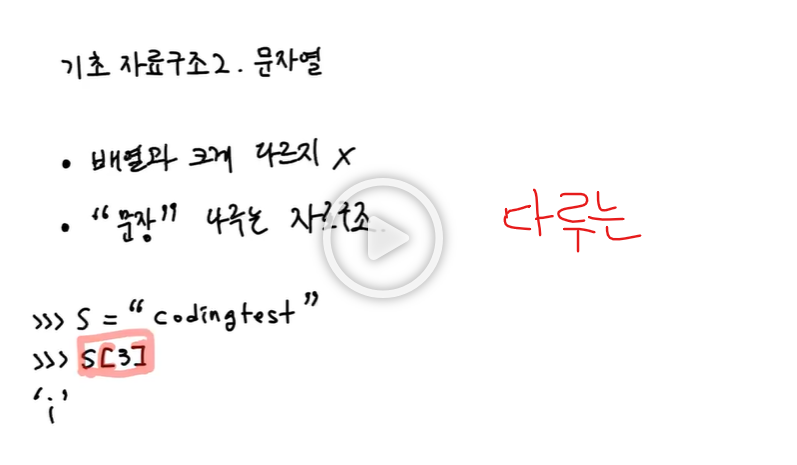 기초 자료구조2. 문자열
• 배열과 크게 다르지 X
• “문장” 다루는 자료구조.
다루는
>>> S = “codingtest”
>>> S[3]
‘i’